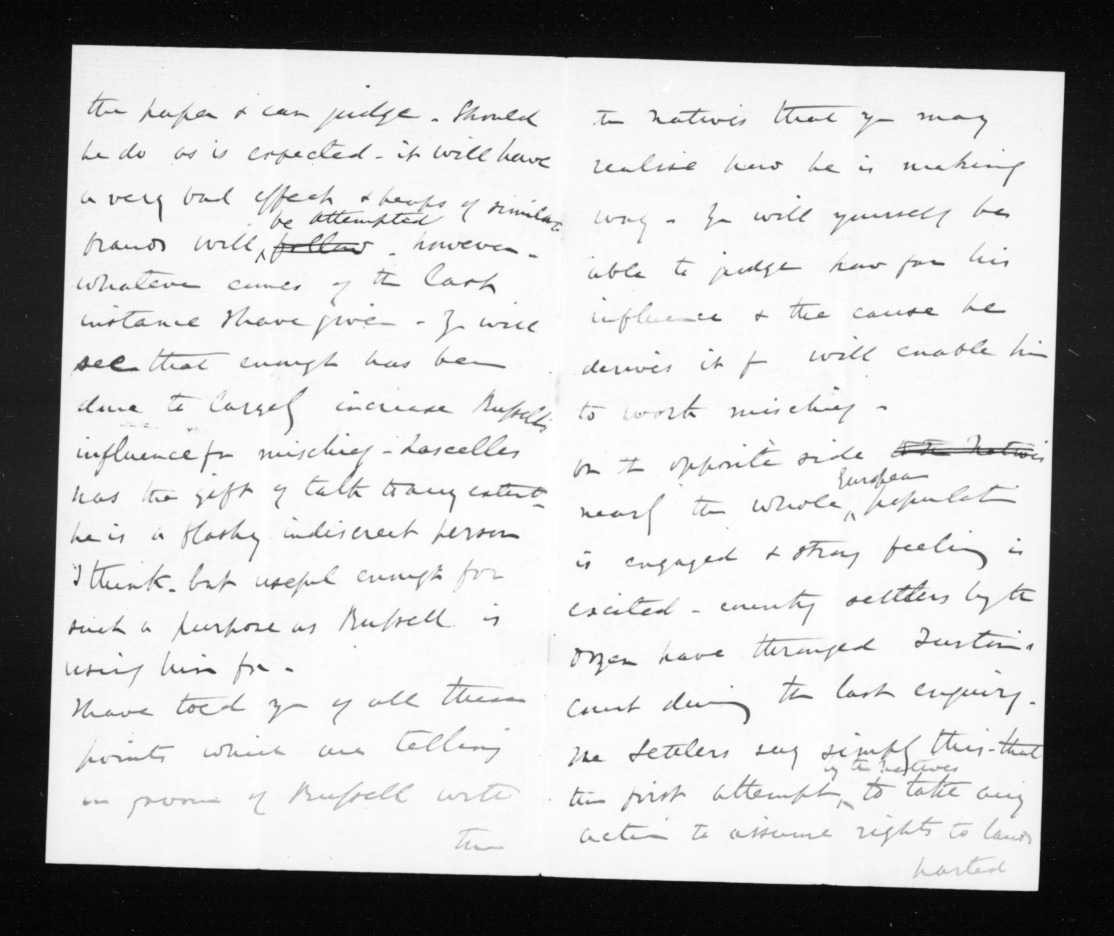 the paper & can judge - Should
he do as is expected - it will have
a very bad effect & heaps of similar
be attempted
frauds will follow - however -
whatever comes of the last
instance I have given - Yr will
see that enough has been
done to largely increase Russells
influence for mischief - Lascelles
has the gift of talk to any extent -
he is a flashy indiscreet person
I think - but useful enough for
such a purpose as Russell is
using him for -
I have told yr of all these
points which are telling
in favour of Russell with
the
the Natives that yr may
realise how he is making
way - Yr will yourself be
able to judge how far his
influence & the cause he
derives it f will enable him
to work mischief -
on the opposite side to the Natives
European
nearly the whole populati
is engaged & strong feeling is
excited - country settlers by the
dozen have thronged
court during the last enquiry -
The Settlers say simply this - that
by the Natives
the first attempt to take any
action to assume rights to lands
parted